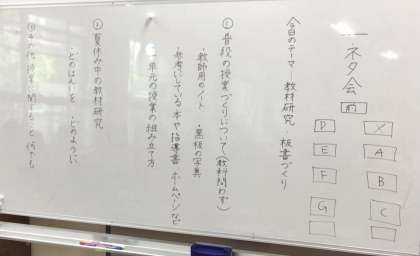 ネタ会
前
メ
A
B
C
P
E
F
G
今日のテーマ 教材研究・板書づくり
① 普段の授業づくりについて(教科問わず)
・教師用のノート ・黒板の写真
・参考にしている本や指導書 ホームページなど
・単元の授業の組み立て方
② 夏休み中の教材研究
・どのように
③ その他、授業に関すること 何でも